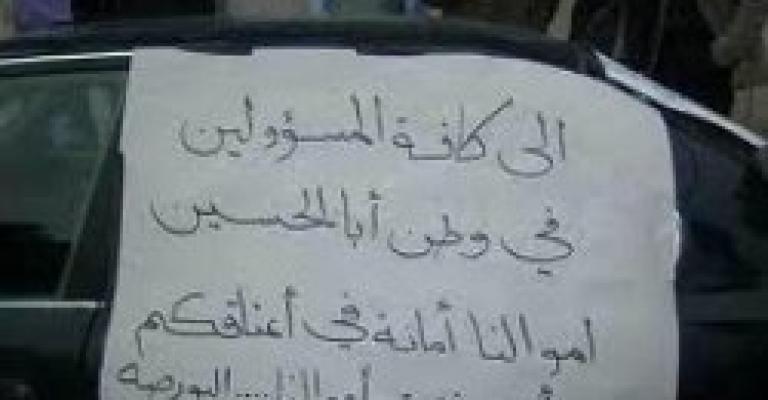 الى كافة المسؤولين
في وطن أبا الحسين
اموالنا أمانة في أعناقكم
أموالنا....البورصه